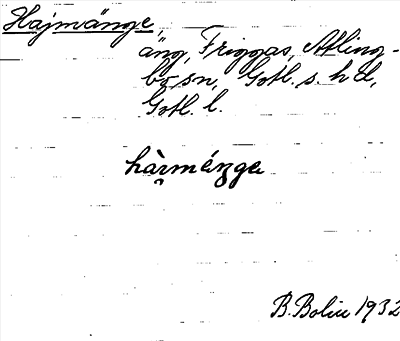 Hajmänge,
äng, Friggas, Atling-
bo sn, Gotl. s. hd,
Gotl. l.
hàrmánge
B. Bolin 1932